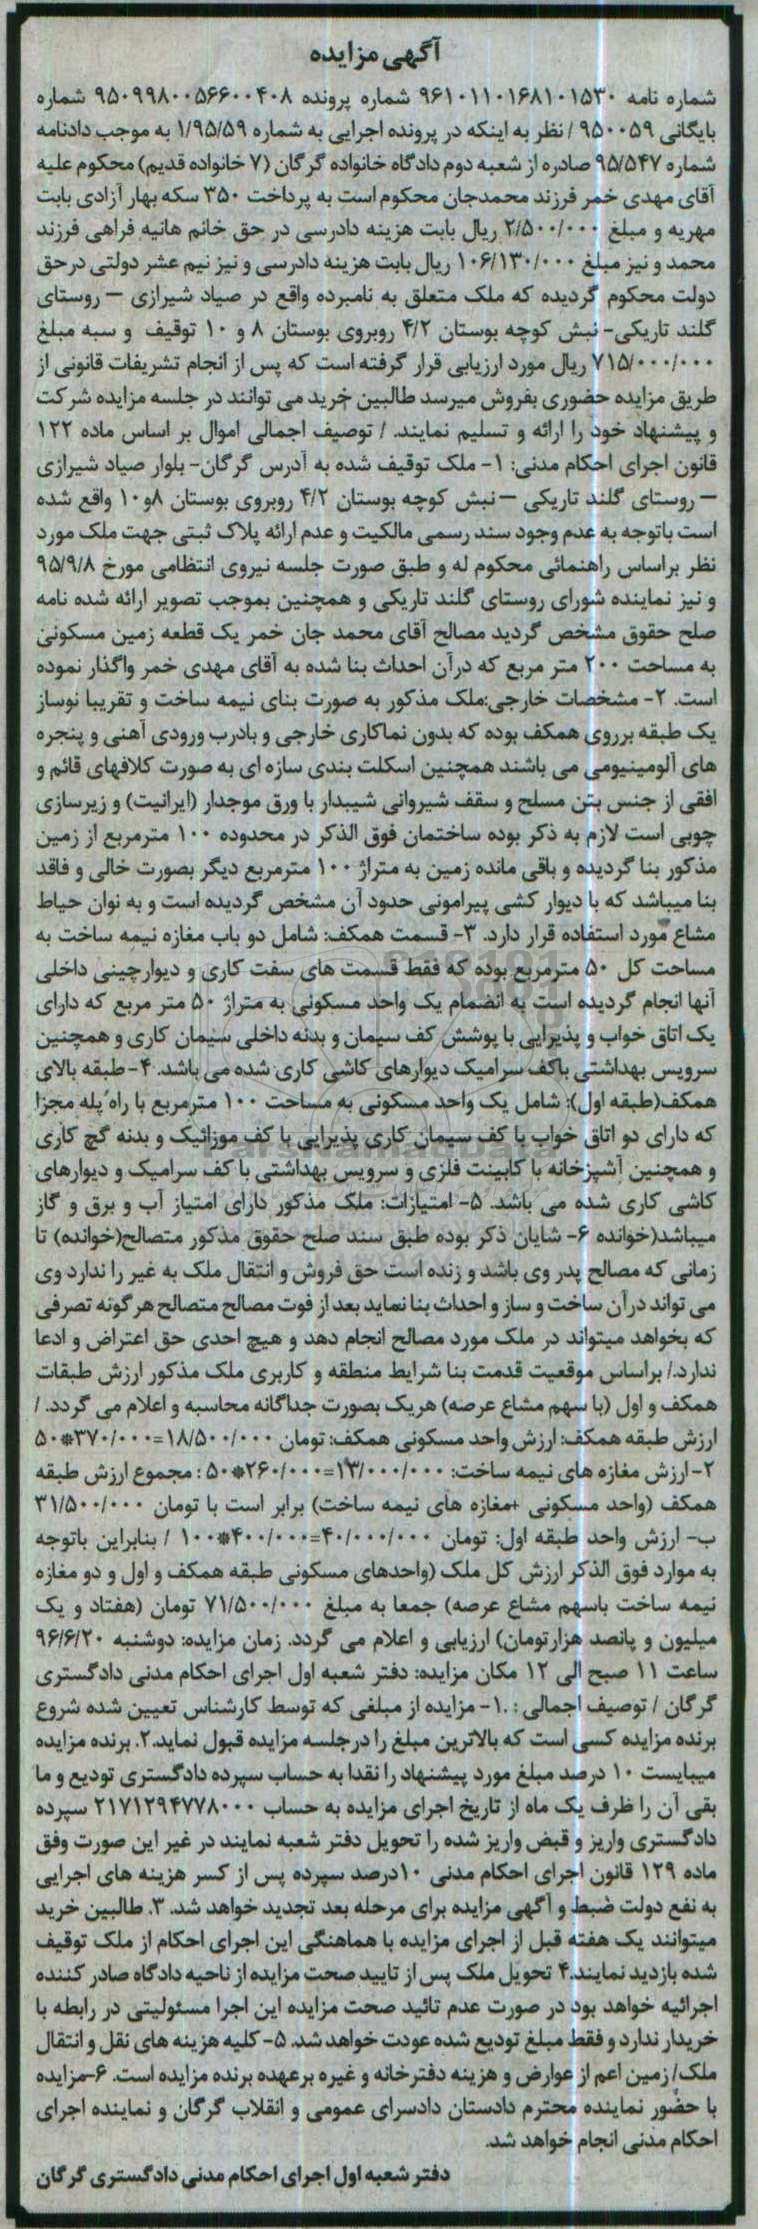 آگهی مزایده
شماره نامه ۹۶۱۰۱۱۰۱۶۸۱۰۱۵۳۰ شماره پرونده ۹۵۰۹۹۸۰۰۵۶۶۰۰۴۰۸ شماره
بایگانی ۹۵۰۰۵۹ / نظر به اینکه در پرونده اجرایی به شماره ۱/۹۵/۵۹ به موجب دادنامه
شماره ۹۵/۵۴۷ صادره از شعبه دوم دادگاه خانواده گرگان (۷ خانواده قدیم) محکوم علیه
آقای مهدی خمر فرزند محمدجان محکوم است به پرداخت ۳۵۰ سکه بهار آزادی بابت
مهریه و مبلغ ۲/۵۰۰/۰۰۰ ریال بابت هزینه دادرسی در حق خانم هانیه فراهی فرزند
محمد و نیز مبلغ ۱۰۶/۱۳۰/۰۰۰ ریال بابت هزینه دادرسی و نیز نیم عشر دولتی درحق
دولت محکوم گردیده که ملک متعلق به نامبرده واقع در صیاد شیرازی – روستای
گلند تاریکی- نبش کوچه بوستان ۴/۲ روبروی بوستان ۸ و ۱۰ توقیف و سبه مبلغ
۷۱۵/۰۰۰/۰۰۰ ریال مورد ارزیابی قرار گرفته است که پس از انجام تشریفات قانونی از
طریق مزایده حضوری بفروش میرسد طالبین خرید می توانند در جلسه مزایده شرکت
و پیشنهاد خود را ارائه و تسلیم نمایند. / توصیف اجمالی اموال بر اساس ماده ۱۲۲
قانون اجرای احکام مدنی: ۱- ملک توقیف شده به آدرس گرگان- بلوار صیاد شیرازی
– روستای گلند تاریکی – نبش کوچه بوستان ۴/۲ روبروی بوستان ۸و۱۰ واقع شده
است باتوجه به عدم وجود سند رسمی مالکیت و عدم ارائه پلاک ثبتی جهت ملک مورد
نظر براساس راهنمائی محکوم له و طبق صورت جلسه نیروی انتظامی مورخ ۹۵/۹/۸
و نیز نماینده شورای روستای گلند تاریکی و همچنین بموجب تصویر ارائه شده نامه
صلح حقوق مشخص گردید مصالح آقای محمد جان خمر یک قطعه زمین مسکونی
به مساحت ۲۰۰ متر مربع که درآن احداث بنا شده به آقای مهدی خمر واگذار نموده
است. ۲- مشخصات خارجی:ملک مذکور به صورت بنای نیمه ساخت و تقریبا نوساز
یک طبقه برروی همکف بوده که بدون نماکاری خارجی و بادرب ورودی آهنی و پنجره
های آلومینیومی می باشند همچنین اسکلت بندی سازه ای به صورت کلافهای قائم و
افقی از جنس بتن مسلح و سقف شیروانی شیبدار با ورق موجدار (ایرانیت) و زیرسازی
چوبی است لازم به ذکر بوده ساختمان فوق الذکر در محدوده ۱۰۰ مترمربع از زمین
مذکور بنا گردیده و باقی مانده زمین به متراژ ۱۰۰ مترمربع دیگر بصورت خالی و فاقد
بنا میباشد که با دیوار کشی پیرامونی حدود آن مشخص گردیده است و به نوان حیاط
مشاع مورد استفاده قرار دارد. ۳- قسمت همکف: شامل دو باب مغازه نیمه ساخت به
مساحت کل ۵۰ مترمربع بوده که فقط قسمت های سفت کاری و دیوارچینی داخلی
آنها انجام گردیده است به انضمام یک واحد مسکونی به متراژ ۵۰ متر مربع که دارای
یک اتاق خواب و پذیرایی با پوشش کف سیمان و بدنه داخلی سیمان کاری و همچنین
سرویس بهداشتی باکف سرامیک دیوارهای کاشی کاری شده می باشد. ۴- طبقه بالای
همکف(طبقه اول): شامل یک واحد مسکونی به مساحت ۱۰۰ مترمربع با راه پله مجزا
که دارای دو اتاق خواب با کف سیمان کاری پذیرایی با کف موزائیک و بدنه گچ کاری
و همچنین آشپزخانه با کابینت فلزی و سرویس بهداشتی با کف سرامیک و دیوارهای
کاشی کاری شده می باشد. ۵- امتیازات: ملک مذکور دارای امتیاز آب و برق و گاز
میباشد(خوانده ۶- شایان ذکر بوده طبق سند صلح حقوق مذکور متصالح(خوانده) تا
زمانی که مصالح پدر وی باشد و زنده است حق فروش و انتقال ملک به غیر را ندارد وی
می تواند درآن ساخت و ساز و احداث بنا نماید بعد از فوت مصالح متصالح هرگونه تصرفی
که بخواهد میتواند در ملک مورد مصالح انجام دهد و هیچ احدی حق اعتراض و ادعا
ندارد./ براساس موقعیت قدمت بنا شرایط منطقه و کاربری ملک مذکور ارزش طبقات
همکف و اول (با سهم مشاع عرصه) هریک بصورت جداگانه محاسبه و اعلام می گردد. /
ارزش طبقه همکف: ارزش واحد مسکونی همکف: تومان ۱۸/۵۰۰/۰۰۰=۳۷۰/۰۰۰*۵۰
۲-ارزش مغازه های نیمه ساخت: ۱۳/۰۰۰/۰۰۰=۲۶۰/۰۰۰*۵۰ : مجموع ارزش طبقه
همکف (واحد مسکونی +مغازه های نیمه ساخت) برابر است با تومان ۳۱/۵۰۰/۰۰۰
ب- ارزش واحد طبقه اول: تومان ۴۰/۰۰۰/۰۰۰=۴۰۰/۰۰۰*۱۰۰ / بنابراین باتوجه
به موارد فوق الذکر ارزش کل ملک (واحدهای مسکونی طبقه همکف و اول و دو مغازه
نیمه ساخت باسهم مشاع عرصه) جمعا به مبلغ ۷۱/۵۰۰/۰۰۰ تومان (هفتاد و یک
میلیون و پانصد هزارتومان) ارزیابی و اعلام می گردد. زمان مزایده: دوشنبه ۹۶/۶/۲۰
ساعت ۱۱ صبح الی ۱۲ مکان مزایده: دفتر شعبه اول اجرای احکام مدنی دادگستری
گرگان / توصیف اجمالی : .۱- مزایده از مبلغی که توسط کارشناس تعیین شده شروع
برنده مزایده کسی است که بالاترین مبلغ را درجلسه مزایده قبول نماید.۲. برنده مزایده
میبایست ۱۰ درصد مبلغ مورد پیشنهاد را نقدا به حساب سپرده دادگستری تودیع و ما
بقی آن را ظرف یک ماه از تاریخ اجرای مزایده به حساب ۲۱۷۱۲۹۴۷۷۸۰۰۰ سپرده
دادگستری واریز و قبض واریز شده را تحویل دفتر شعبه نمایند در غیر این صورت وفق
ماده ۱۲۹ قانون اجرای احکام مدنی ۱۰درصد سپرده پس از کسر هزینه های اجرایی
به نفع دولت ضبط و آگهی مزایده برای مرحله بعد تجدید خواهد شد. ۳. طالبین خرید
میتوانند یک هفته قبل از اجرای مزایده با هماهنگی این اجرای احکام از ملک توقیف
شده بازدید نمایند.۴ تحویل ملک پس از تایید صحت مزایده از ناحیه دادگاه صادر کننده
اجرائیه خواهد بود در صورت عدم تائید صحت مزایده این اجرا مسئولیتی در رابطه با
خریدار ندارد و فقط مبلغ تودیع شده عودت خواهد شد. ۵- کلیه هزینه های نقل و انتقال
ملک/ زمین اعم از عوارض و هزینه دفترخانه و غیره برعهده برنده مزایده است. ۶-مزایده
با حضور نماینده محترم دادستان دادسرای عمومی و انقلاب گرگان و نماینده اجرای
احکام مدنی انجام خواهد شد.
دفتر شعبه اول اجرای احکام مدنی دادگستری گرگان